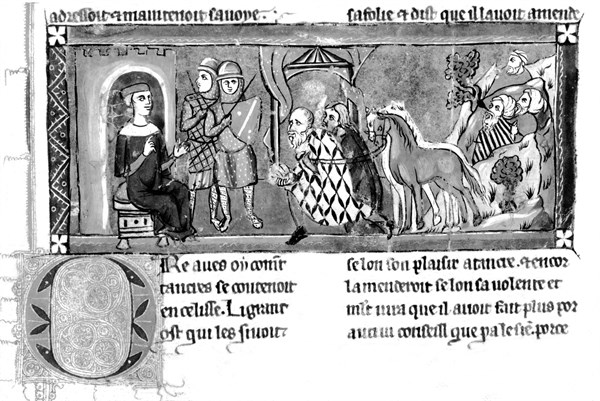 adressoit & maintenoit sa voye.
sa folie & dist que il lavoit amende
ORe aves oy comt
tancres se contenoit
en celisse. Li grant
ost qui les sivoit
selon son plaisir a tancre. & encor
lamenderoit selon sa volente et
mlt iura que il avoit fait plus por
autrui conseill que pa le sien. porce